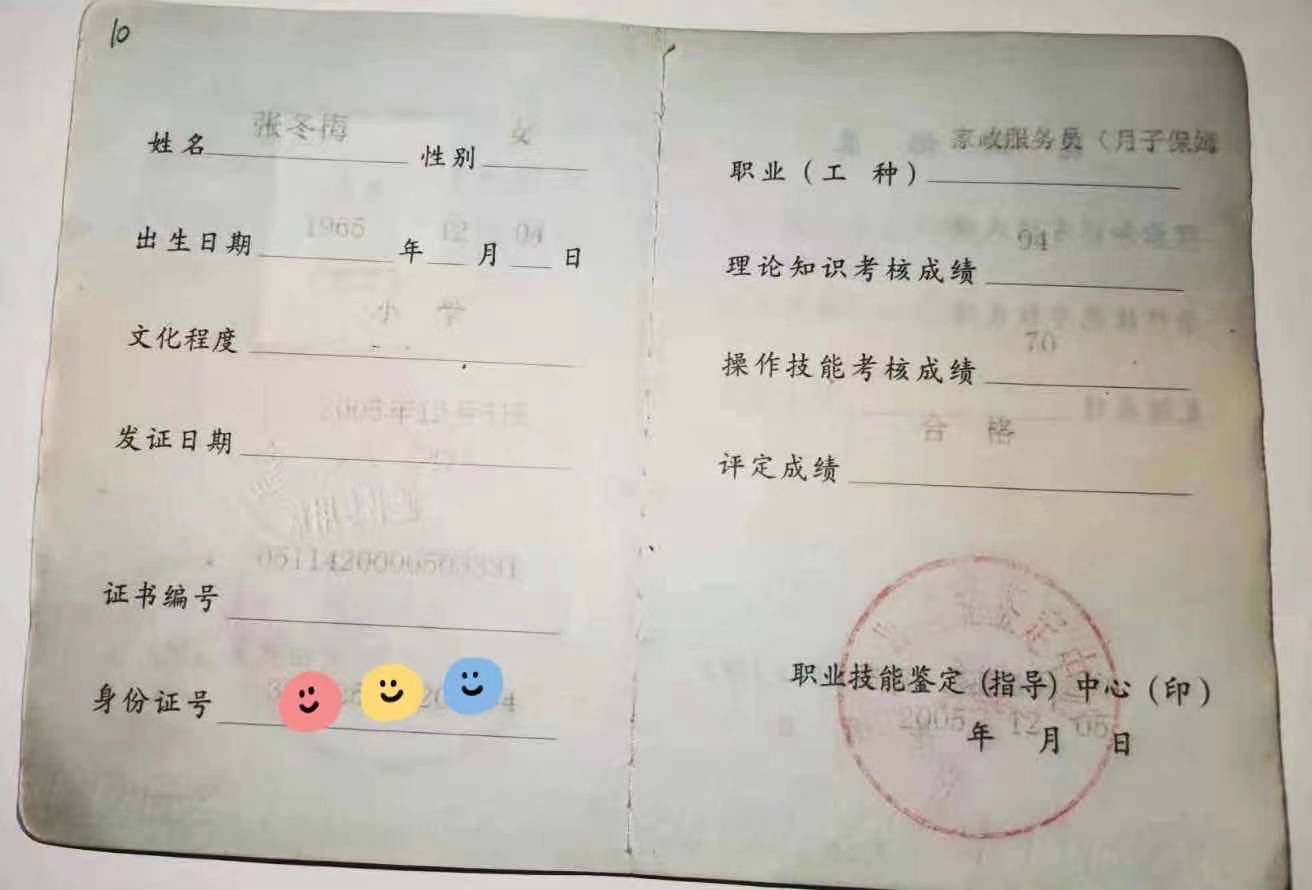 10
姓名 张冬梅 性别 女
出生日期 1965 年 02 月 04 日
文化程度 小 学
发证日期 2005年12月5日
证书编号 0511420000503331
身份证号
职业(工 种) 家政服务员(月子保姆
理论知识考核成绩 94
操作技能考核成绩 70
评定成绩 合 格
职业技能鉴定(指导)中心(印)
2005 年 12 月 05 日